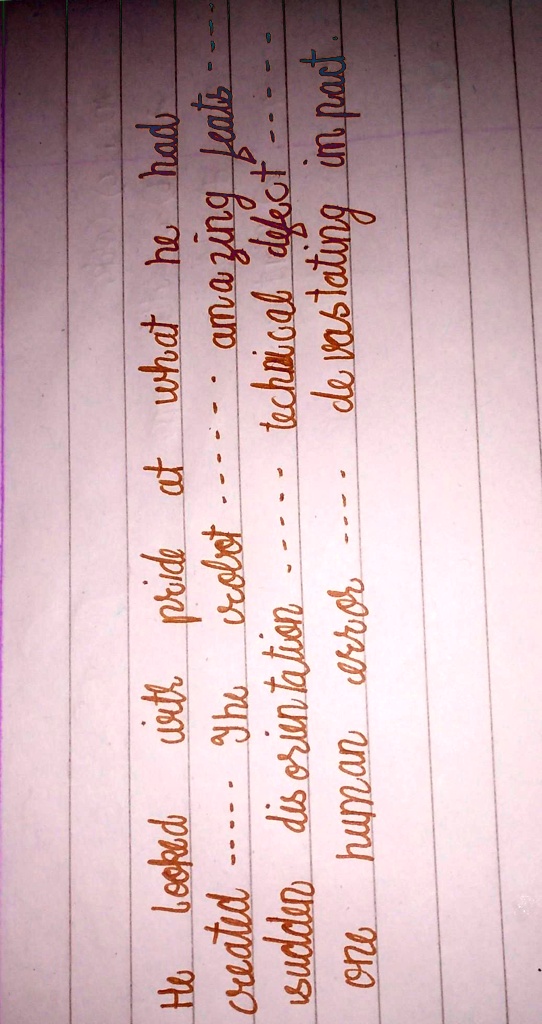 He looked with pride at what he had
created ..... The robot ...... amazing feats ....
sudden disorientation ...... technical defect ......
one human error .... devastating impact.